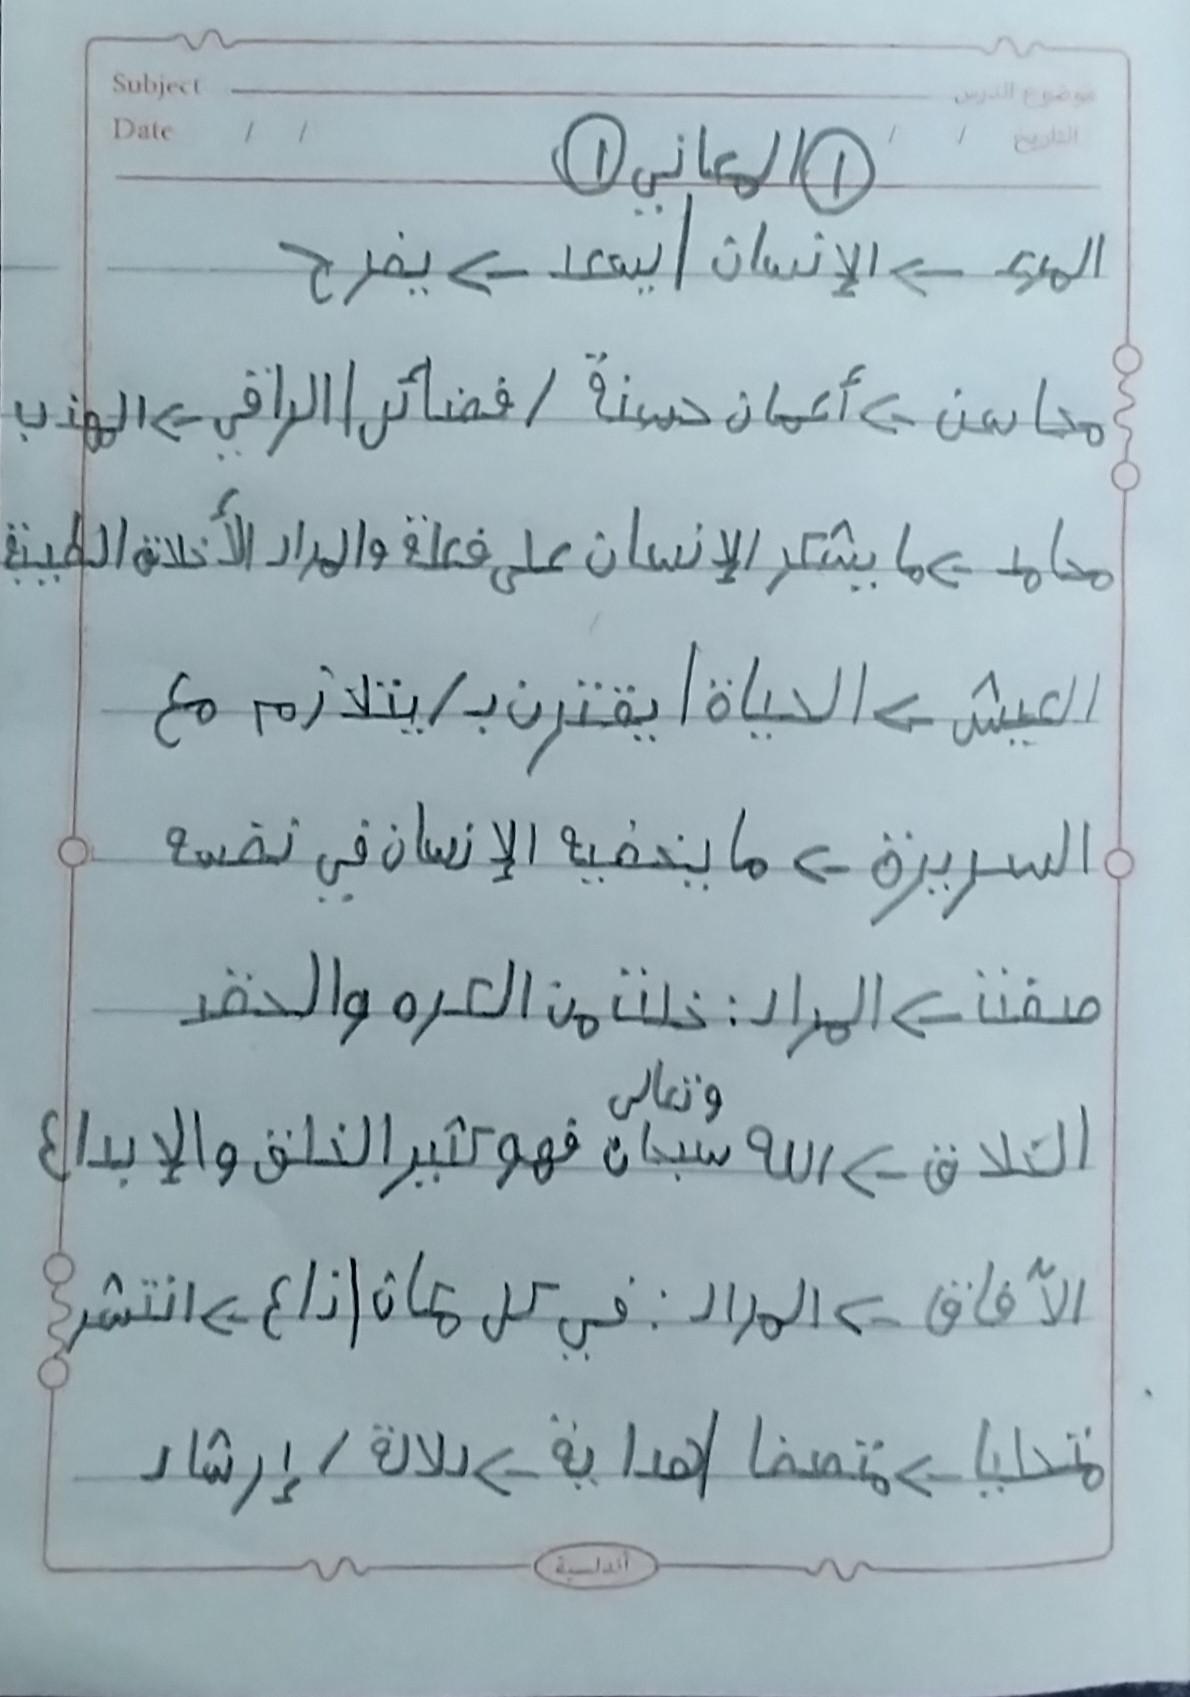 Subject موضوع الدرس
Date / / / / التاريخ
① المعاني ①
المرء -> الإنسان / يسعد -> يفرح
محاسن -> أعمال حسنة / فضائل / الراقي -> المهذب
محامد -> ما يشكر الإنسان على فعلة والمراد الأخلاق الطيبة
العيش -> الحياة / يقترن بـ / يتلازم مع
السريرة -> ما يخفيه الإنسان في نفسه
صفت -> المراد : خلت من الكره والحقد
الخلاق -> الله سبحان وتعالى فهو كثير الخلق والإبداع
الآفاق -> المراد : في كل مكان / ذاع -> انتشر
متحليا -> متصفا / هداية -> دلالة / إرشاد
أندلسية